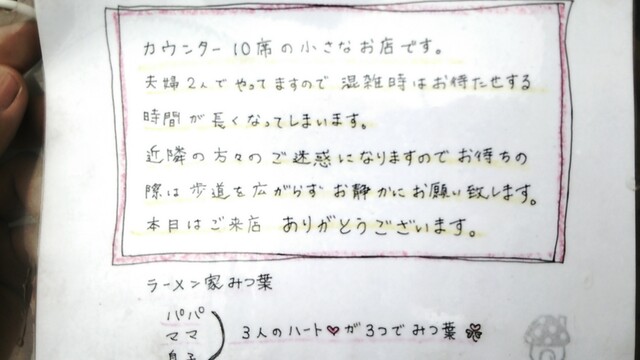 カウンター10席の小さなお店です。
夫婦2人でやってますので 混雑時はお待たせする
時間が長くなってしまいます。
近隣の方々のご迷惑になりますのでお待ちの
際は歩道を広がらず お静かにお願い致します。
本日はご来店 ありがとうございます。
ラーメン家みつ葉
パパ
ママ
息子
3人のハート♥が3つでみつ葉